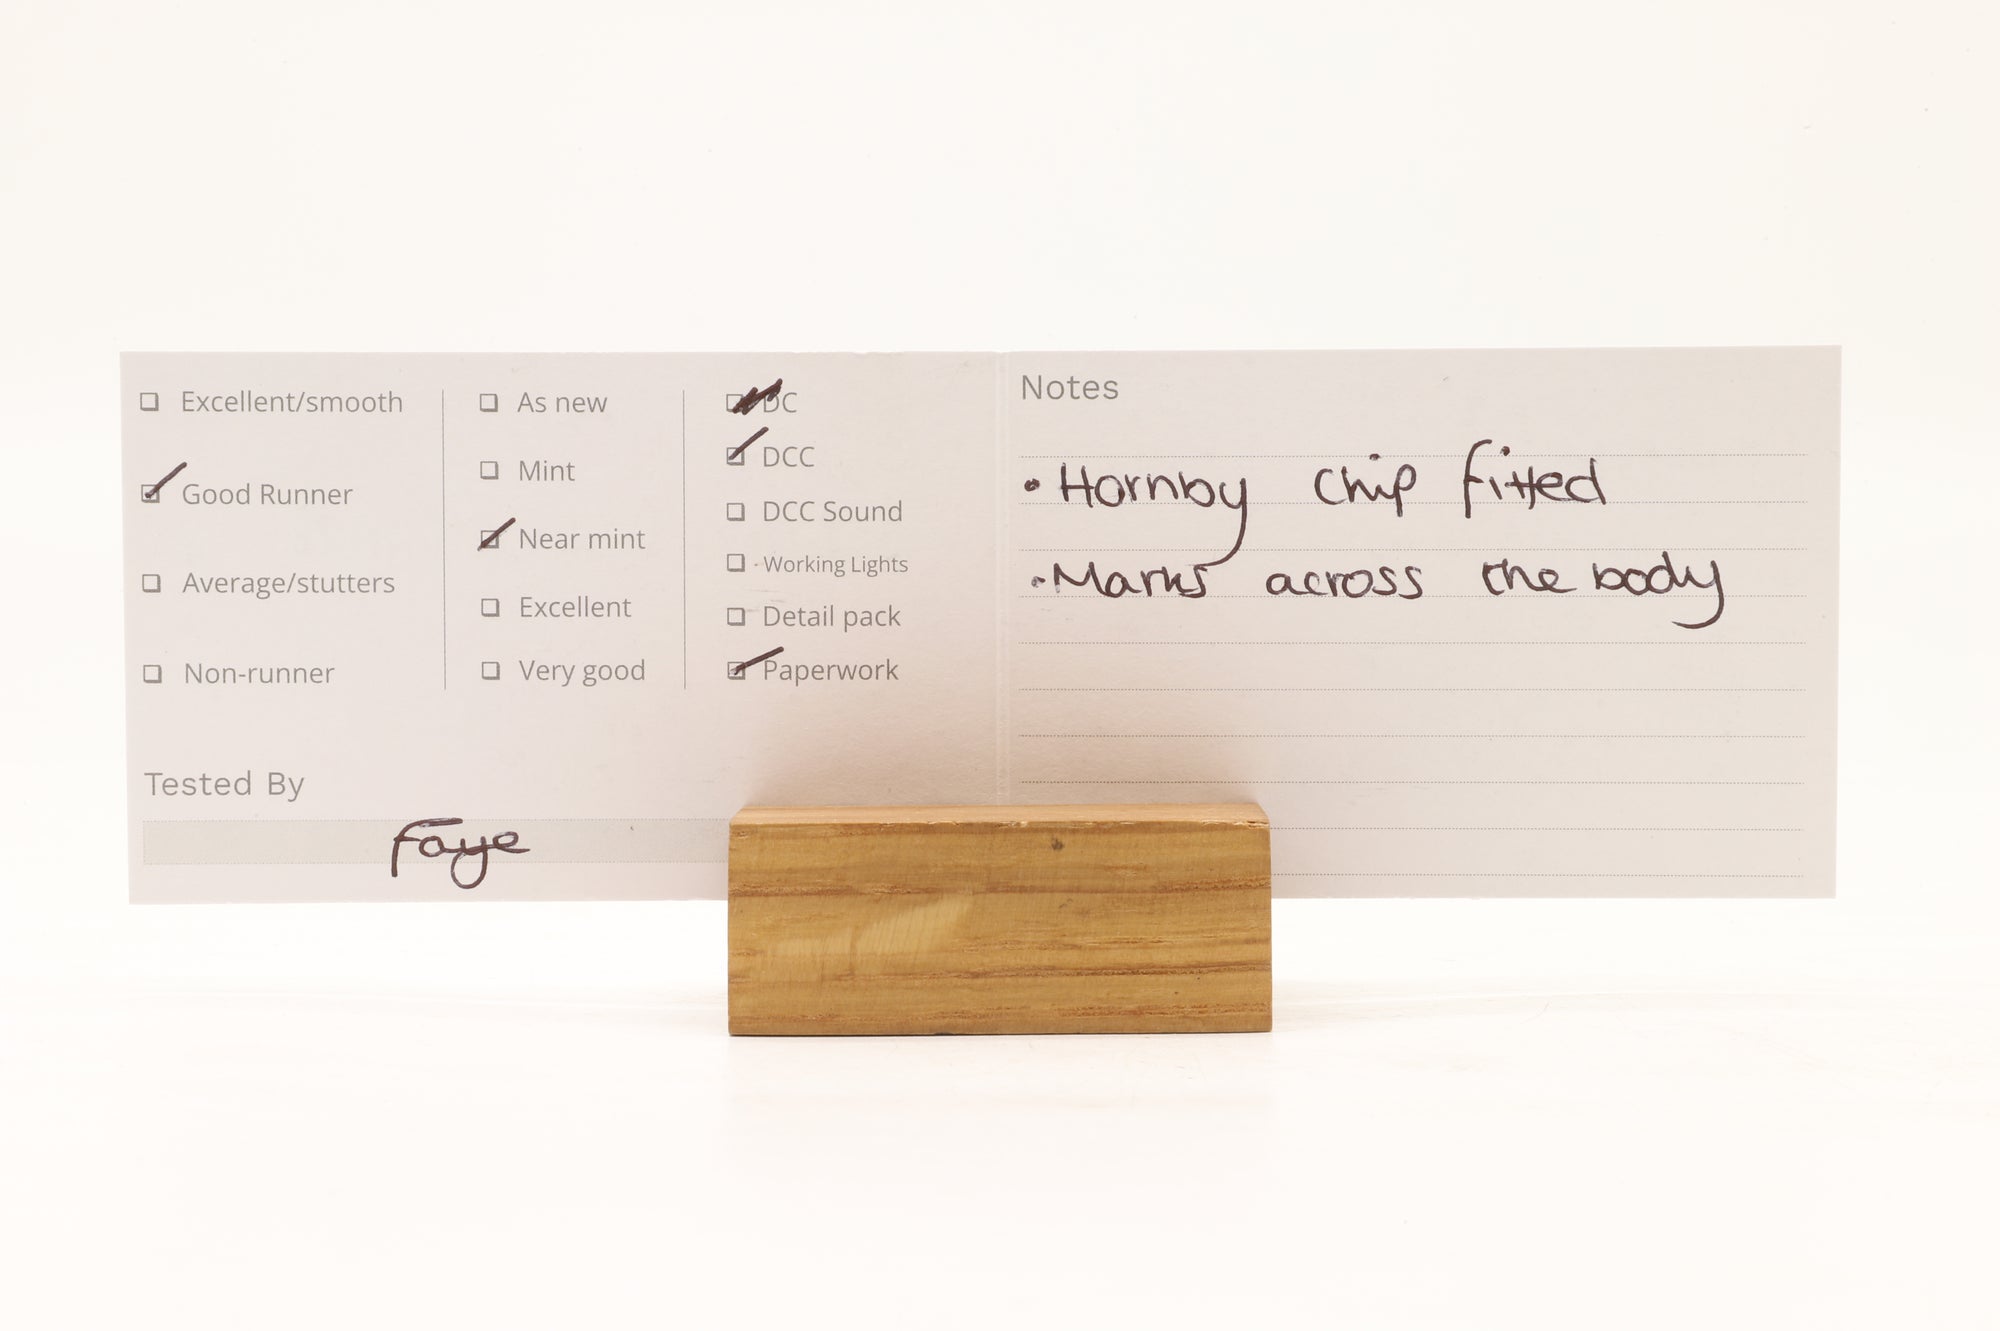 ☐ Excellent/smooth
☑ Good Runner
☐ Average/stutters
☐ Non-runner
☐ As new
☐ Mint
☑ Near mint
☐ Excellent
☐ Very good
☐ DC
☑ DCC
☐ DCC Sound
☐ - Working Lights
☐ Detail pack
☑ Paperwork
Tested By
Faye
Notes
• Hornby Chip fitted
• Marks across the body